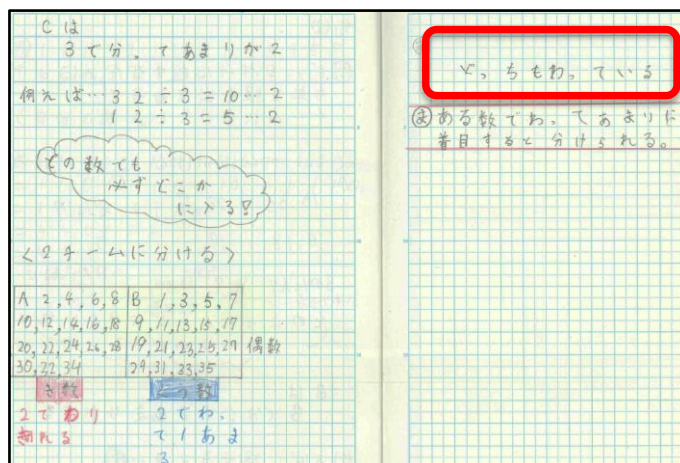 Cは
3で分、てあまりが2
例えば…32÷3=10…2
12÷3=5…2
どの数でも
必ずどこか
に入る!!
<2チームに分ける>
A 2,4,6,8 B 1,3,5,7
10,12,14,16,18 9,11,13,15,17
20,22,24,26,28 19,21,23,25,27 偶数
30,32,34 29,31,33,35
き数 ぐう数
2でわり 2でわ、
きれる て1あま
ど、ちもわ、ている
ま ある数でわ、てあまりに
着目すると分けられる。